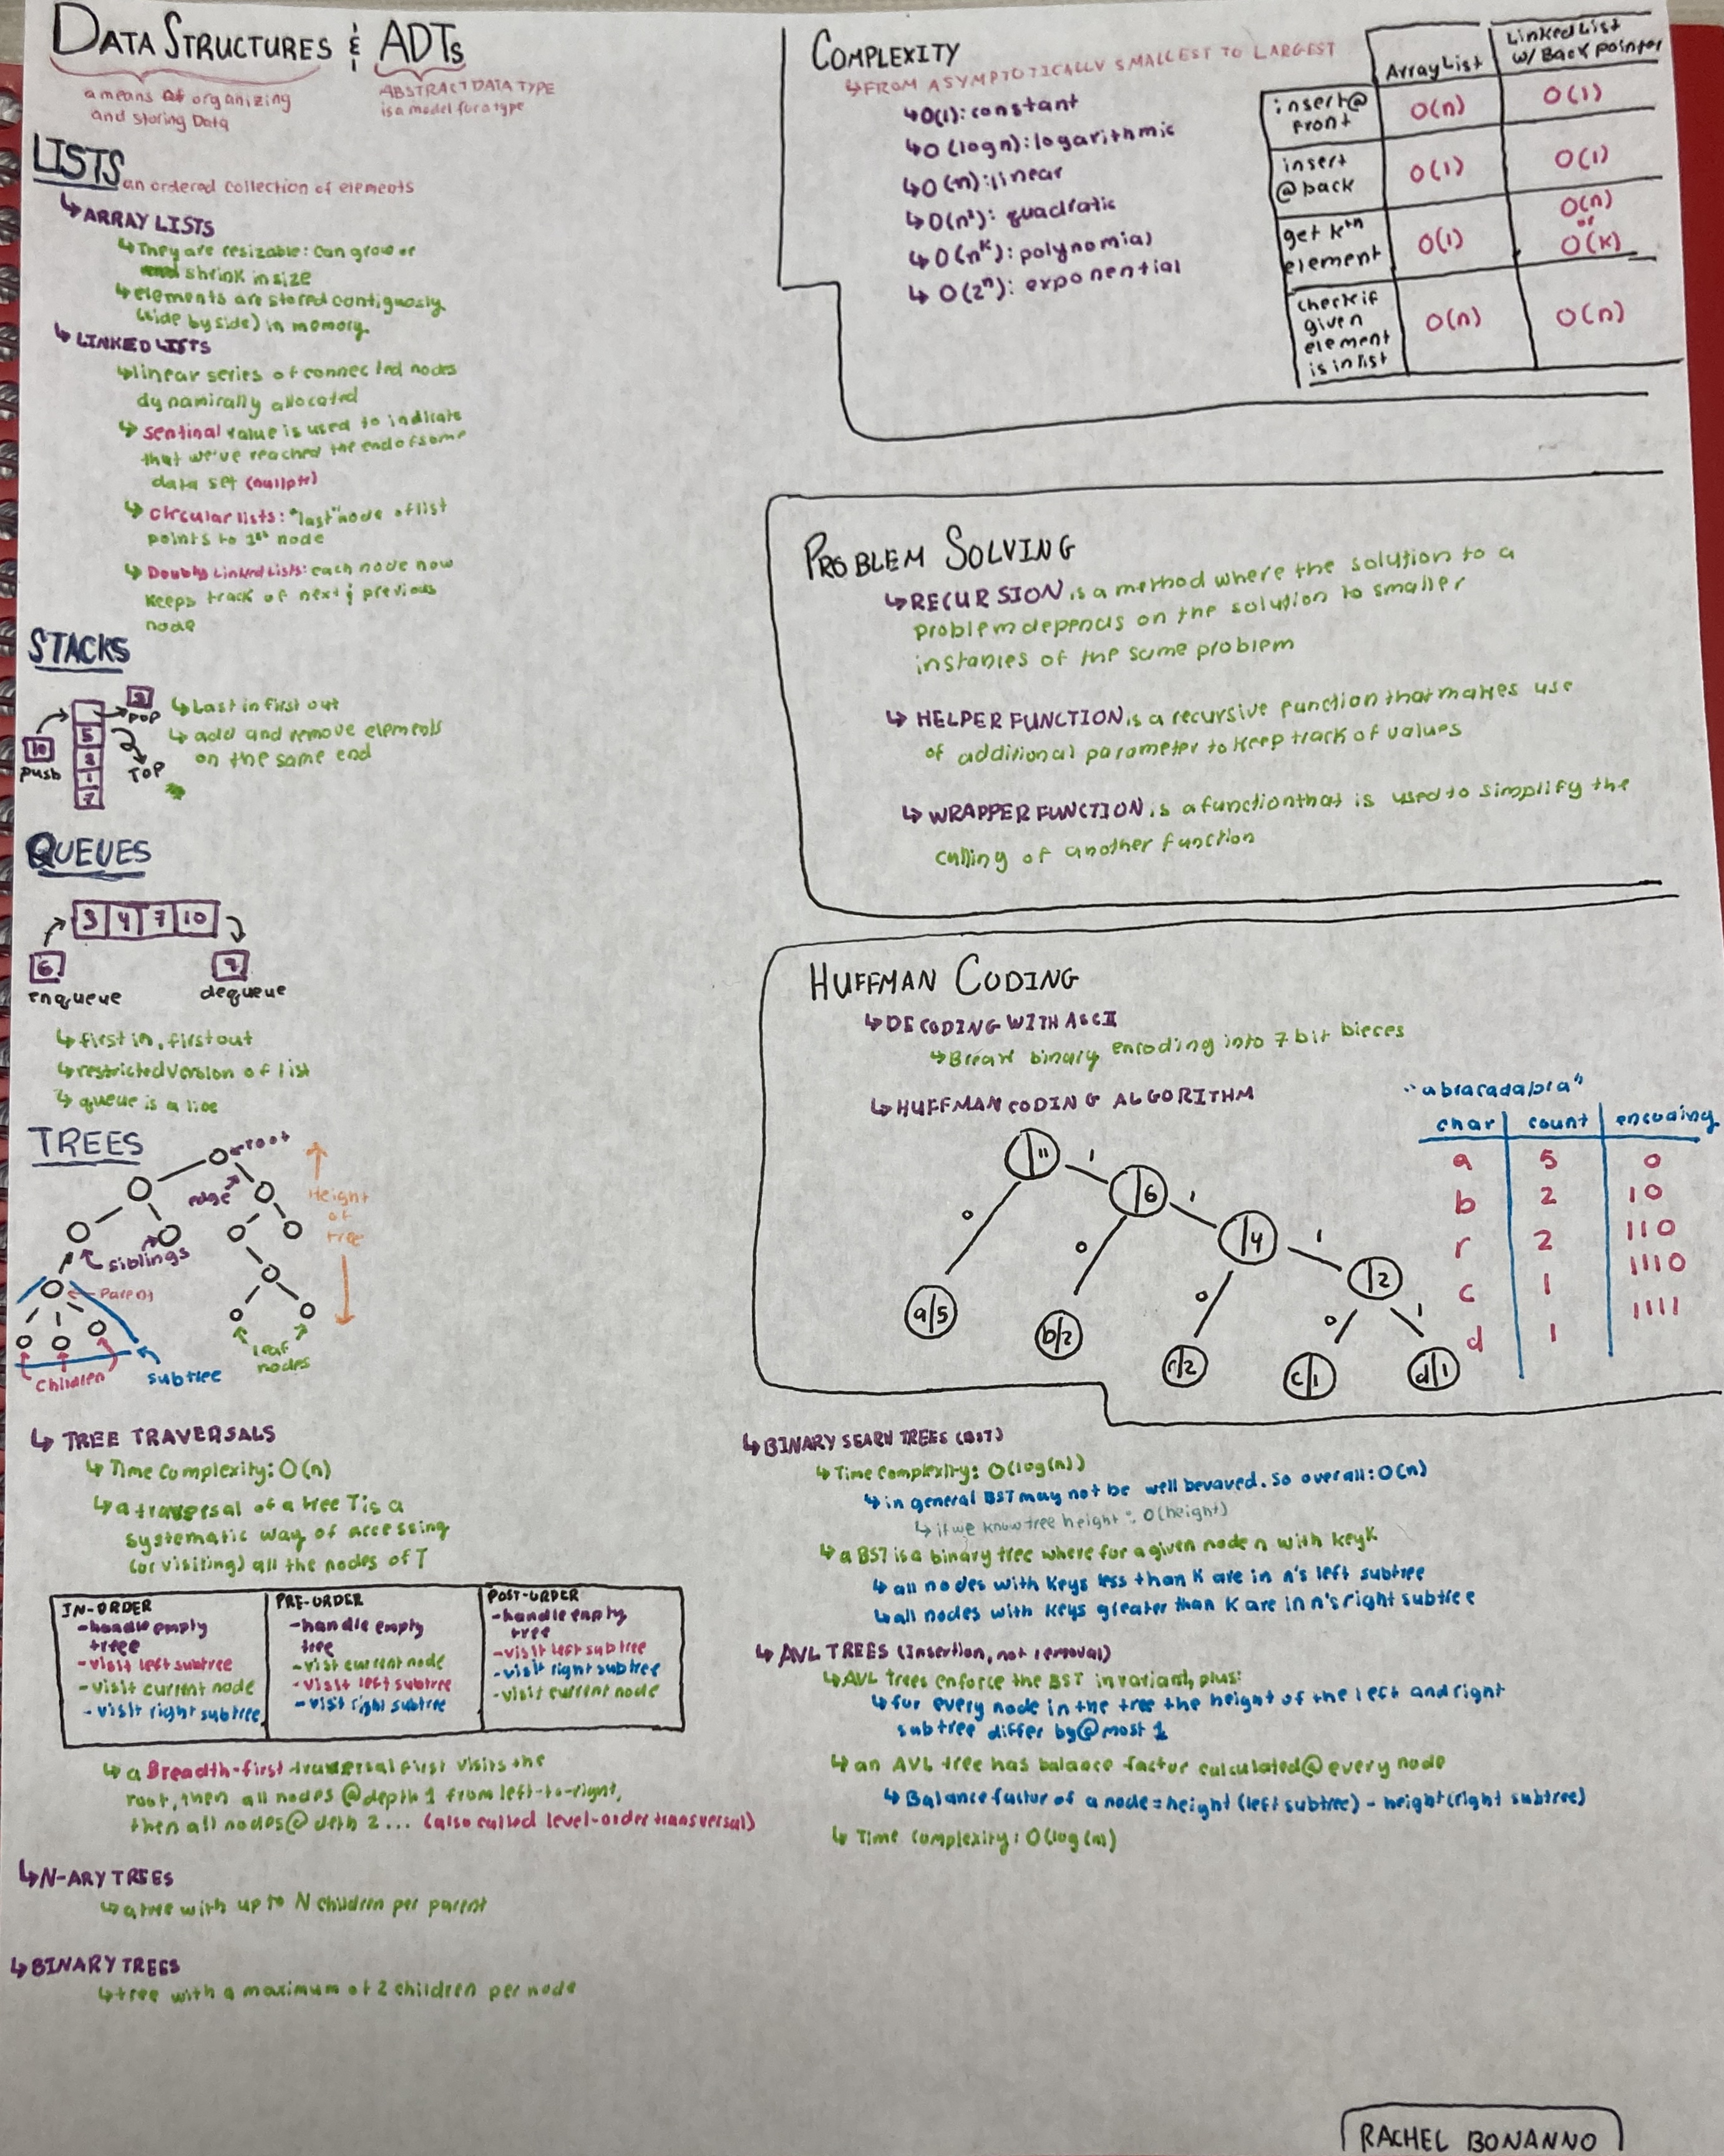 DATA STRUCTURES & ADTs
a means of organizing
and storing Data
ABSTRACT DATA TYPE
is a model for a type
LISTS an ordered collection of elements
↳ ARRAY LISTS
↳ They are resizable: can grow or
shrink in size
↳ elements are stored contiguosly
(side by side) in memory
↳ LINKED LISTS
↳ linear series of connected nodes
dynamically allocated
↳ sentinal value is used to indicate
that we've reached the end of some
data set (nullptr)
↳ circular lists: "last" node of list
points to 1st node
↳ Doubly Linked Lists: each node now
keeps track of next & previous
node
STACKS
9
pop
10
push
5
8
1
7
TOP
↳ Last in first out
↳ add and remove elements
on the same end
QUEUES
3 4 7 10
6
enqueue
9
dequeue
↳ first in, first out
↳ restricted version of list
↳ queue is a line
TREES
root
edge
Height
of
tree
siblings
Parent
Children
subtree
leaf
nodes
↳ TREE TRAVERSALS
↳ Time complexity: O(n)
↳ a traversal of a tree T is a
systematic way of accessing
(or visiting) all the nodes of T
IN-ORDER
- handle empty
treee
- visit left subtree
- visit current node
- visit right subtree
PRE-ORDER
- handle empty
tree
- visit current node
- visit left subtree
- visit right subtree
POST-ORDER
- handle empty
tree
- visit left subtree
- visit right subtree
- visit current node
↳ a Breadth-first traversal first visits the
root, then all nodes @ depth 1 from left-to-right,
then all nodes @ deth 2... (also called level-order transversal)
↳ N-ARY TREES
↳ a tree with up to N children per parent
↳ BINARY TREES
↳ tree with a maximum of 2 children per node
COMPLEXITY
↳ FROM ASYMPTOTICALLY SMALLEST TO LARGEST
↳ O(1): constant
↳ O(logn): logarithmic
↳ O(n): linear
↳ O(n²): quadratic
↳ O(nᵏ): polynomial
↳ O(2ⁿ): exponential
Array List
Linked List
w/ Back pointer
insert @
front
O(n)
O(1)
insert
@ back
O(1)
O(1)
get kth
element
O(1)
O(n)
or
O(k)
check if
given
element
is in list
O(n)
O(n)
PROBLEM SOLVING
↳ RECURSION is a method where the solution to a
problem depends on the solution to smaller
instances of the same problem
↳ HELPER FUNCTION is a recursive function that makes use
of additional parameter to keep track of values
↳ WRAPPER FUNCTION is a function that is used to simplify the
calling of another function
HUFFMAN CODING
↳ DECODING WITH ASCII
↳ Break binary encoding into 7 bit pieces
↳ HUFFMAN CODING ALGORITHM
|11
1
0
|6
1
0
|4
1
0
|2
0
1
a|5
b|2
r|2
c|1
d|1
"abracadabra"
char count encoding
a 5 0
b 2 10
r 2 110
c 1 1110
d 1 1111
↳ BINARY SEARH TREES (BST)
↳ Time complexity: O(log(n))
↳ in general BST may not be well bevaved. so overall: O(n)
↳ if we know tree height: O(height)
↳ a BST is a binary tree where for a given node n with key K
↳ all nodes with keys less than K are in n's left subtree
↳ all nodes with keys greater than K are in n's right subtree
↳ AVL TREES (Insertion, not removal)
↳ AVL trees enforce the BST invariant, plus:
↳ for every node in the tree the height of the left and right
subtree differ by @ most 1
↳ an AVL tree has balance factor calculated @ every node
↳ Balance factor of a node = height (left subtree) - height (right subtree)
↳ Time complexity: O(log(n)
RACHEL BONANNO